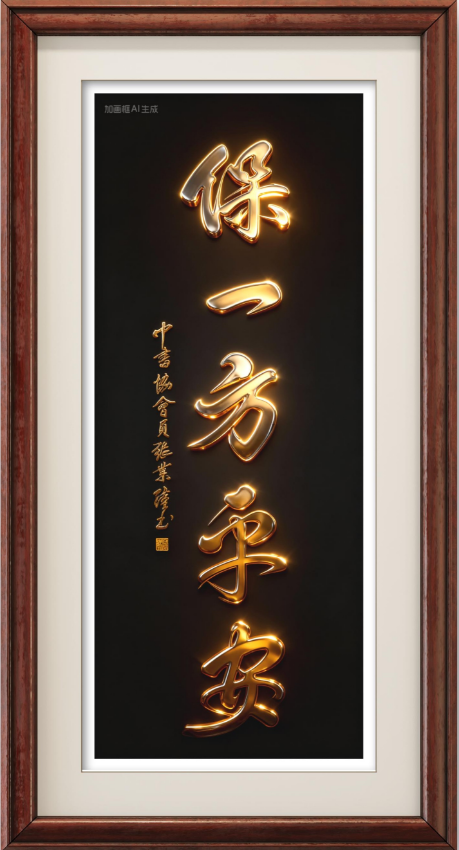 加画框AI生成
保一方平安
中書協會員張業隆书